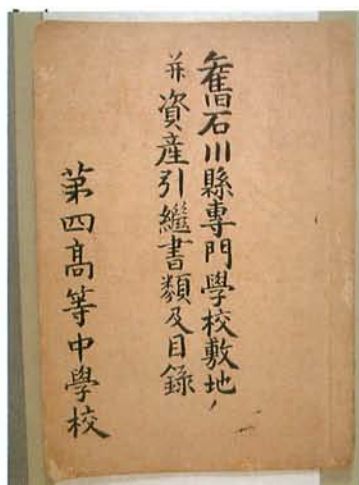 舊石川縣專門學校敷地
并資產引繼書類及目錄
第四高等中學校